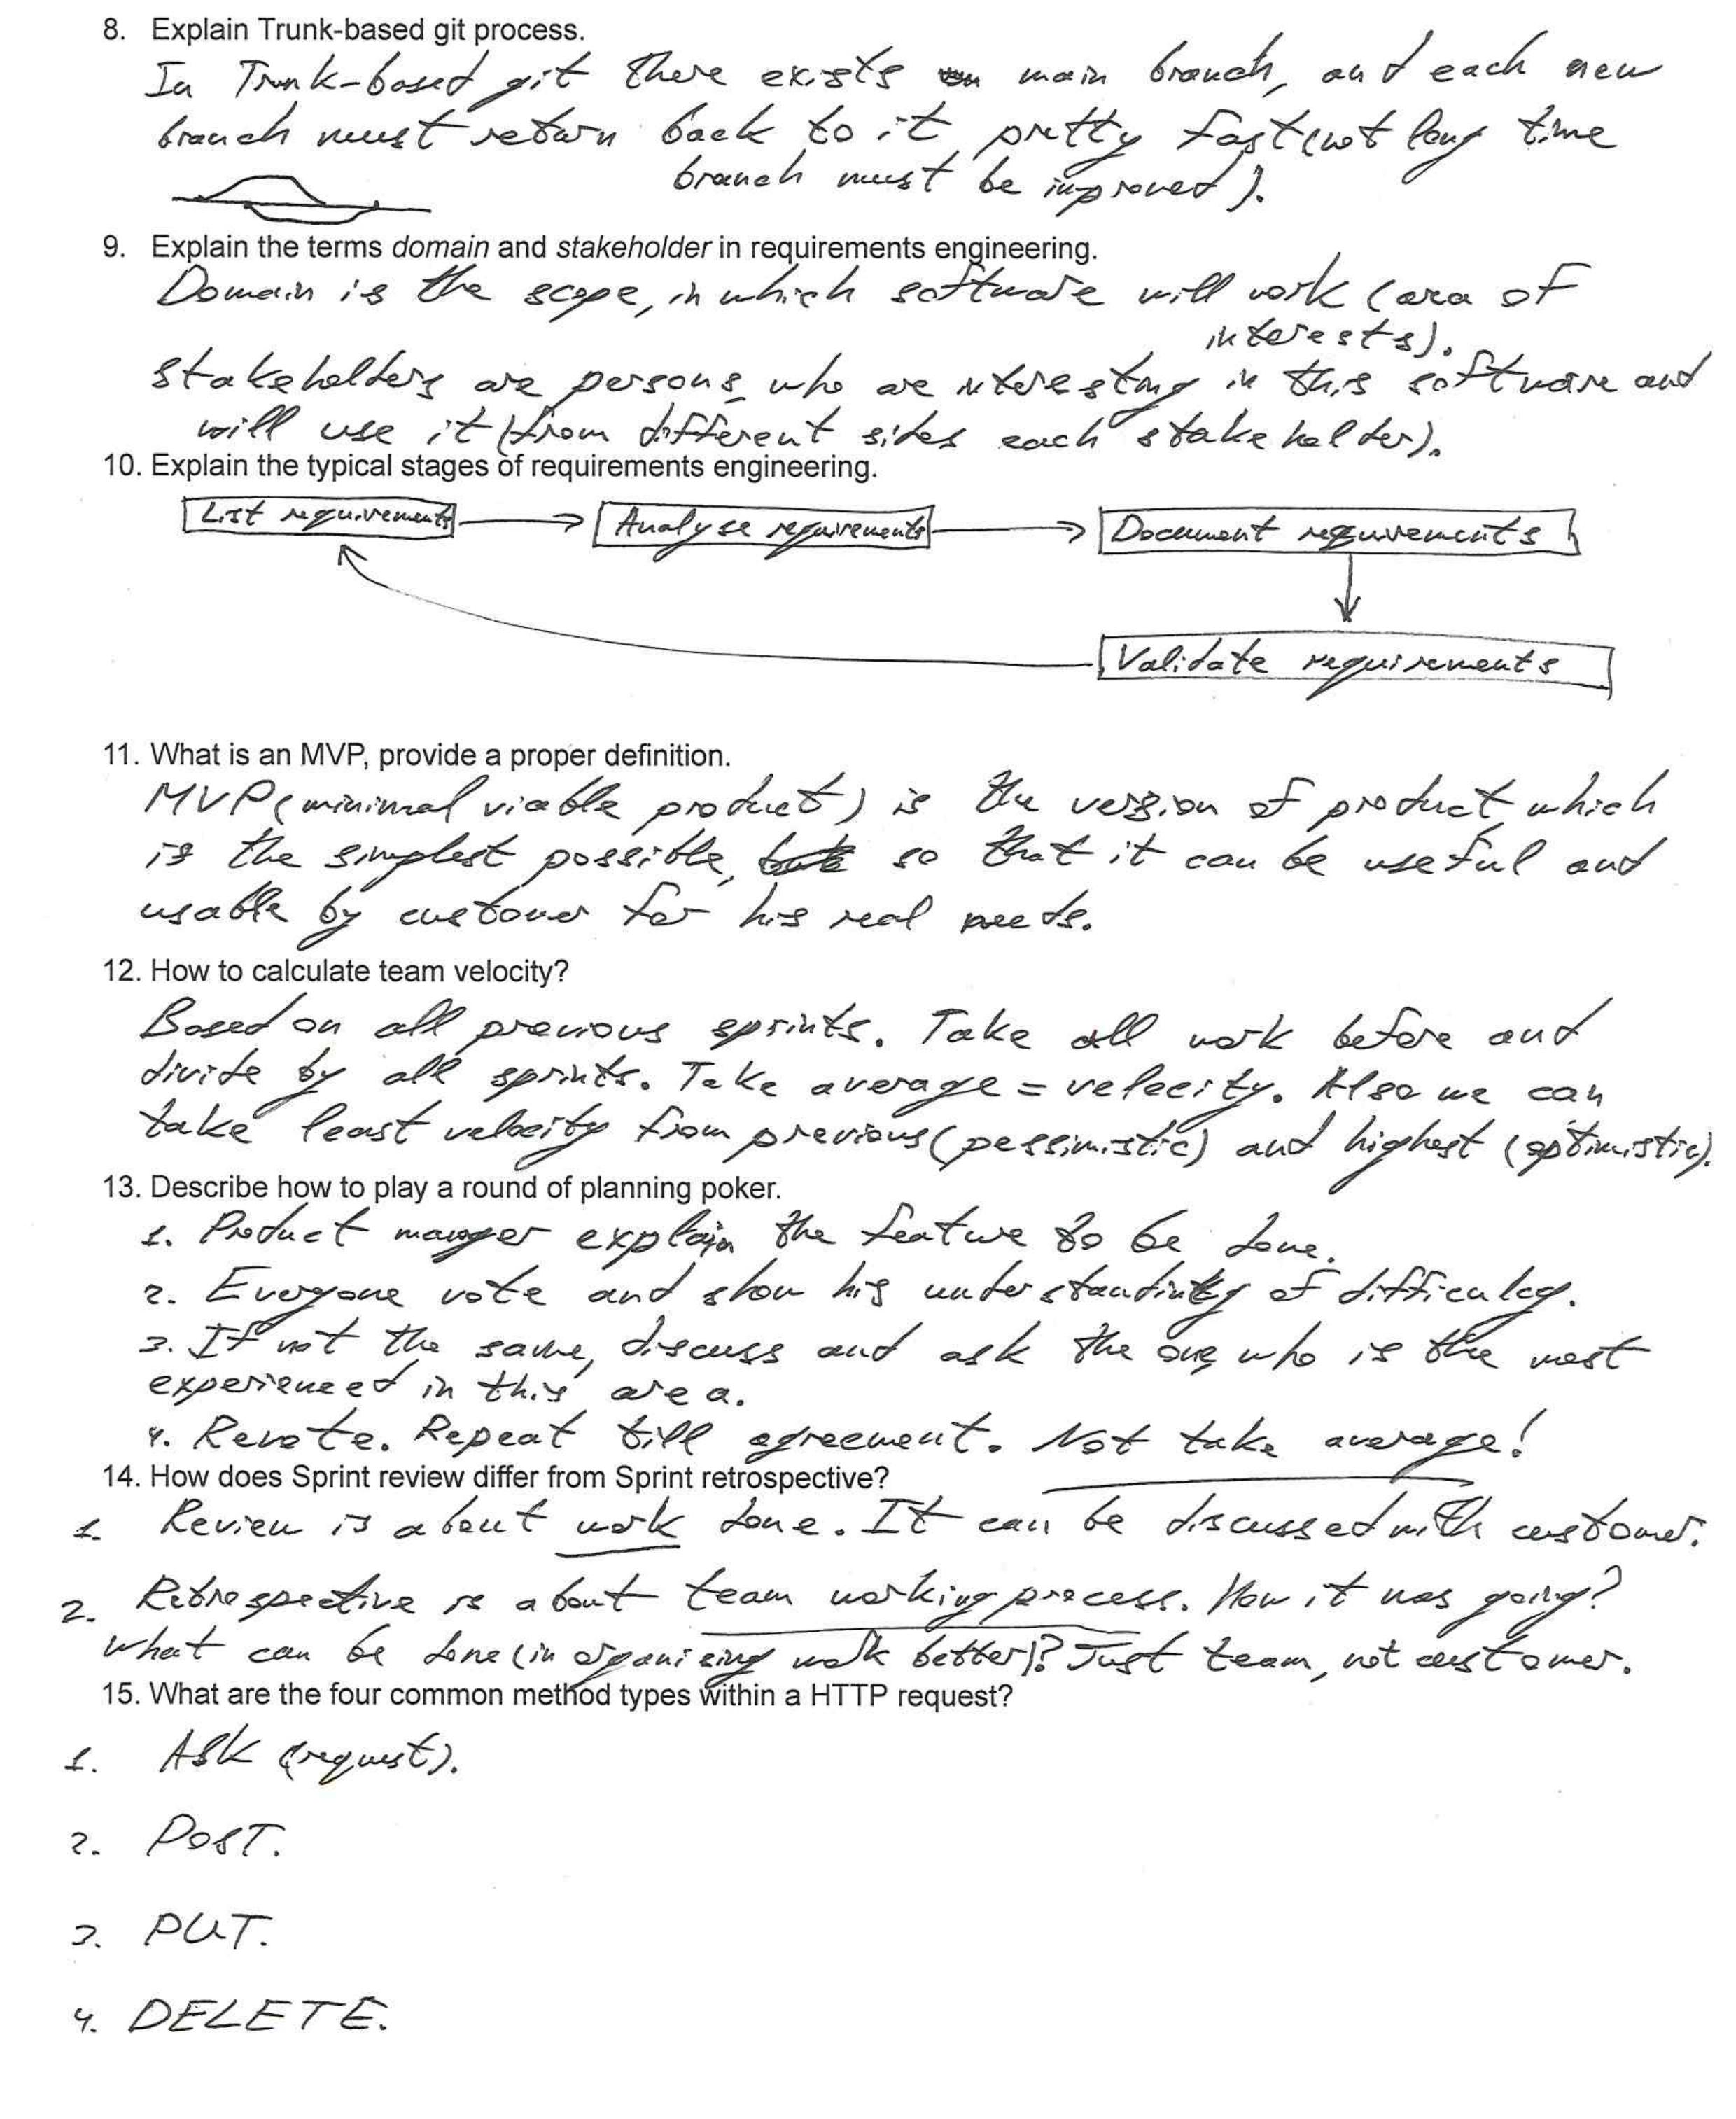 8. Explain Trunk-based git process.
In Trunk-based git there exists main branch, and each new
branch must return back to it pretty fast (not long time
branch must be improved).
9. Explain the terms domain and stakeholder in requirements engineering.
Domain is the scope, in which software will work (area of
interests).
Stakeholders are persons who are interesting in this software and
will use it (from different sides each stakeholder).
10. Explain the typical stages of requirements engineering.
List requirements
Analyse requirements
Document requirements
Validate requirements
11. What is an MVP, provide a proper definition.
MVP (minimal viable product) is the version of product which
is the simplest possible, so that it can be useful and
usable by customer for his real needs.
12. How to calculate team velocity?
Based on all previous sprints. Take all work before and
divide by all sprints. Take average = velocity. Also we can
take least velocity from previous (pessimistic) and highest (optimistic).
13. Describe how to play a round of planning poker.
1. Product manager explain the feature to be done.
2. Everyone vote and show his understanding of difficulty.
3. If not the same, discuss and ask the one who is the most
experienced in this area.
4. Revote. Repeat till agreement. Not take average!
14. How does Sprint review differ from Sprint retrospective?
1. Review is about work done. It can be discussed with customer.
2. Retrospective is about team working process. How it was going?
What can be done (in organising work better)? Just team, not customer.
15. What are the four common method types within a HTTP request?
1. ASK (request).
2. POST.
3. PUT.
4. DELETE.